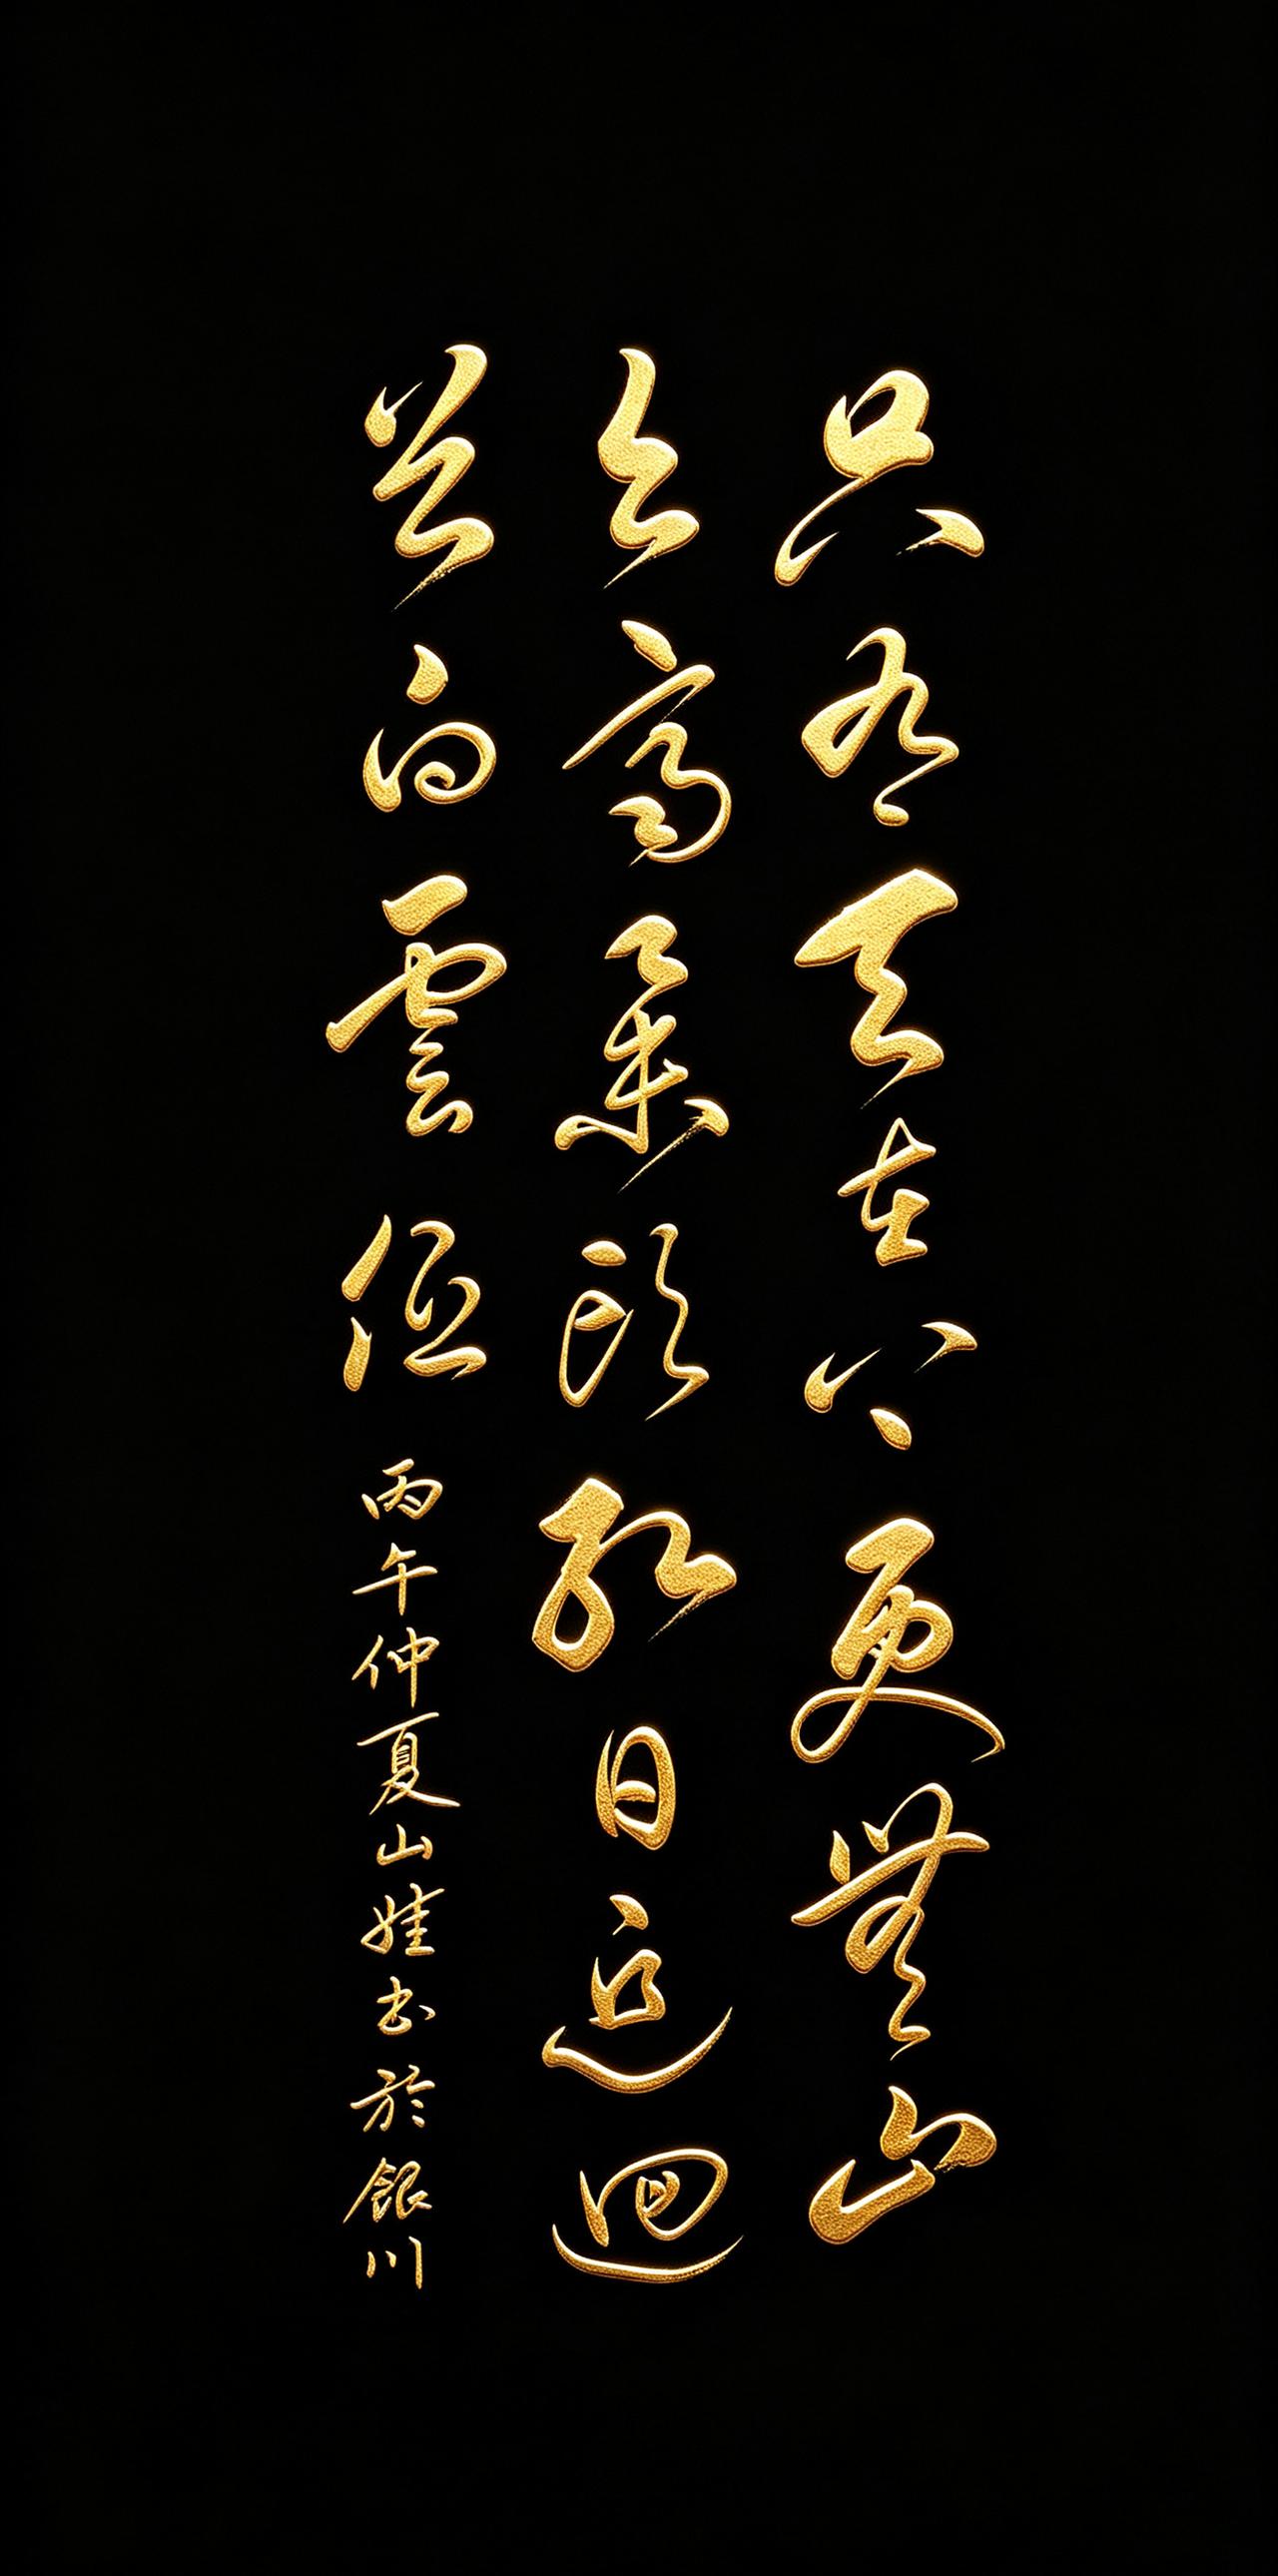 只有天在上更無山
与齊舉頭紅日近回
首白雲低丙午仲夏山娃书於銀川